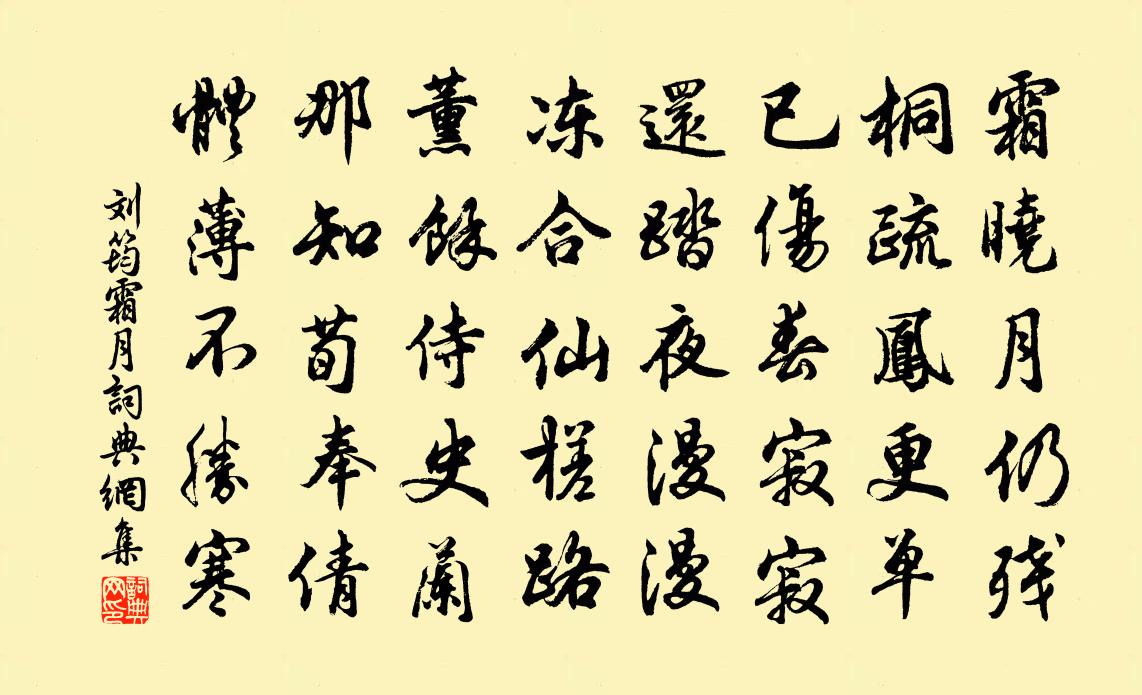 霜曉月仍残
桐疏鳳更单
已傷春寂寂
還踏夜漫漫
冻合仙槎路
薰餘侍史蘭
那知荀奉倩
體薄不勝寒
刘筠霜月詞典網集
詞典网印